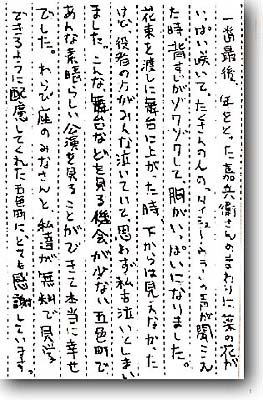 一番最後、年をとった嘉兵衛さんのまわりに菜の花が
いっぱい咲いて、たくさんの人の、タイショーのう、の声が聞こえ
た時、背すじがゾクゾクして、胸がいっぱいになりました。
花束を渡しに舞台に上がった時、下からは見えなかった
けど、役者の方がみんな泣いていて、思わず私も泣いてしまい
ました。こんな舞台などを見る機会が少ない五色町で
あんな素晴らしい公演を見ることができて本当に幸せ
でした。わらび座のみなさんと、私達が無料で見学
できるように配慮してくれた五色町に、とても感謝しています。